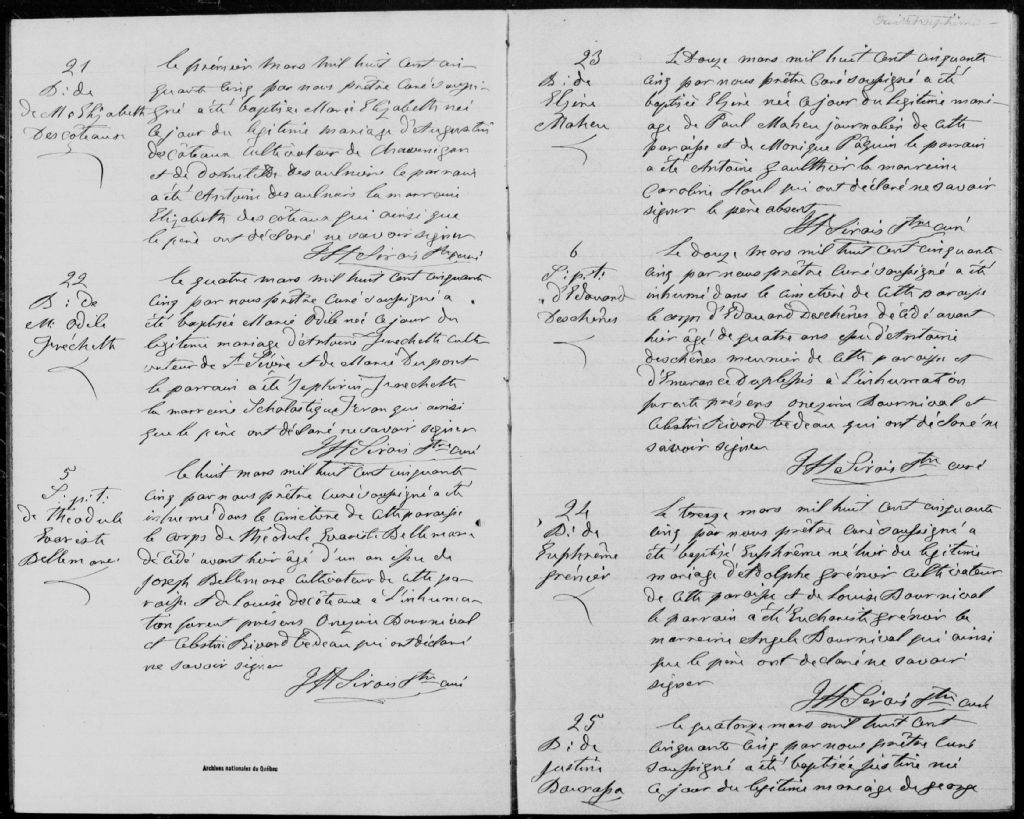 21
B: de
de M. Elizabeth
Descoteaux
le premier mars mil huit cent cin-
quante cinq par nous prêtre curé soussi-
gné a été baptisé Marie Elizabeth née
ce jour du légitime mariage d'Augustin
descôteaux cultivateur de Chawenigan
et de Domitilde desaulniers le parrain
a été Antoine des aulniers la marraine
Elizabeth des coteaux qui ainsi que
le père ont déclaré ne savoir signer
JH Sirois Ptre curé
22
B: de
M. Odile
Fréchette
le quatre mars mil huit cent cinquante
cinq par nous prêtre curé soussigné a
été baptisée Marie Odile née ce jour du
légitime mariage d'Antoine Frechette culti-
vateur de St Sévère et de Marie Dupont
le parrain a été Zephirin Frechette
la marreine Scholastique qui ainsi
que le père ont déclaré ne savoir signer
JH Sirois Ptre curé
5
S: pt:
de Théodule
Evariste
Bellemare
le huit mars mil huit cent cinquante
cinq par nous prêtre curé soussigné a été
inhumé dans le cimetière de cette paroisse
le corps de Théodule Evariste Bellemare
décédé avant hier âgé d'un an issu de
Joseph Bellemare cultivateur de cette pa-
roisse et de Louise descôteaux à l'inhuma-
tion furent présens Onezim Bournival
et Célestin Rivard bedeau qui ont déclaré
ne savoir signer
JH Sirois Ptre curé
Archives nationales du Québec
23
B: de
Elzire
Maheu
Le Douze mars mil huit cent cinquante
cinq par nous prêtre curé soussigné a été
baptisée Elzire née ce jour du légitime mari-
age de Paul Maheu journalier de cette
paroisse et de Monique Pâquin le parrain
a été Antoine Gaulthier la marreine
Caroline Houl qui ont déclaré ne savoir
signer le père absent
JH Sirois Ptre curé
6
S: pt:
d'Edouard
Deschênes
Le Douze mars mil huit cent cinquante
cinq par nous prêtre curé soussigné a été
inhumé dans le cimetière de cette paroisse
le corps d'Edouard Deschênes décédé avant
hier âgé de quatre ans issu d'Antoine
deschênes meunier de cette paroisse et
d'Emerance Duplessis à l'inhumation
furent présens Onezim Bournival et
Célestin Rivard bedeau qui ont déclaré ne
savoir signer
JH Sirois Ptre curé
24
B: de
Euphrême
grénier
Le treize mars mil huit cent cinquante
cinq par nous prêtre curé soussigné a
été baptisé Euphrême né hier du légitime
mariage d'Adolphe grénier cultivateur
de cette paroisse et de Louise Bournival
le parrain a été Euchariste grénier la
marreine Angele Bournival qui ainsi
que le père ont déclaré ne savoir
signer
JH Sirois Ptre curé
25
B: de
justine
Bourassa
le quatorze mars mil huit cent
cinquante cinq par nous prêtre curé
soussigné a été baptisée justine née
ce jour du légitime mariage de george